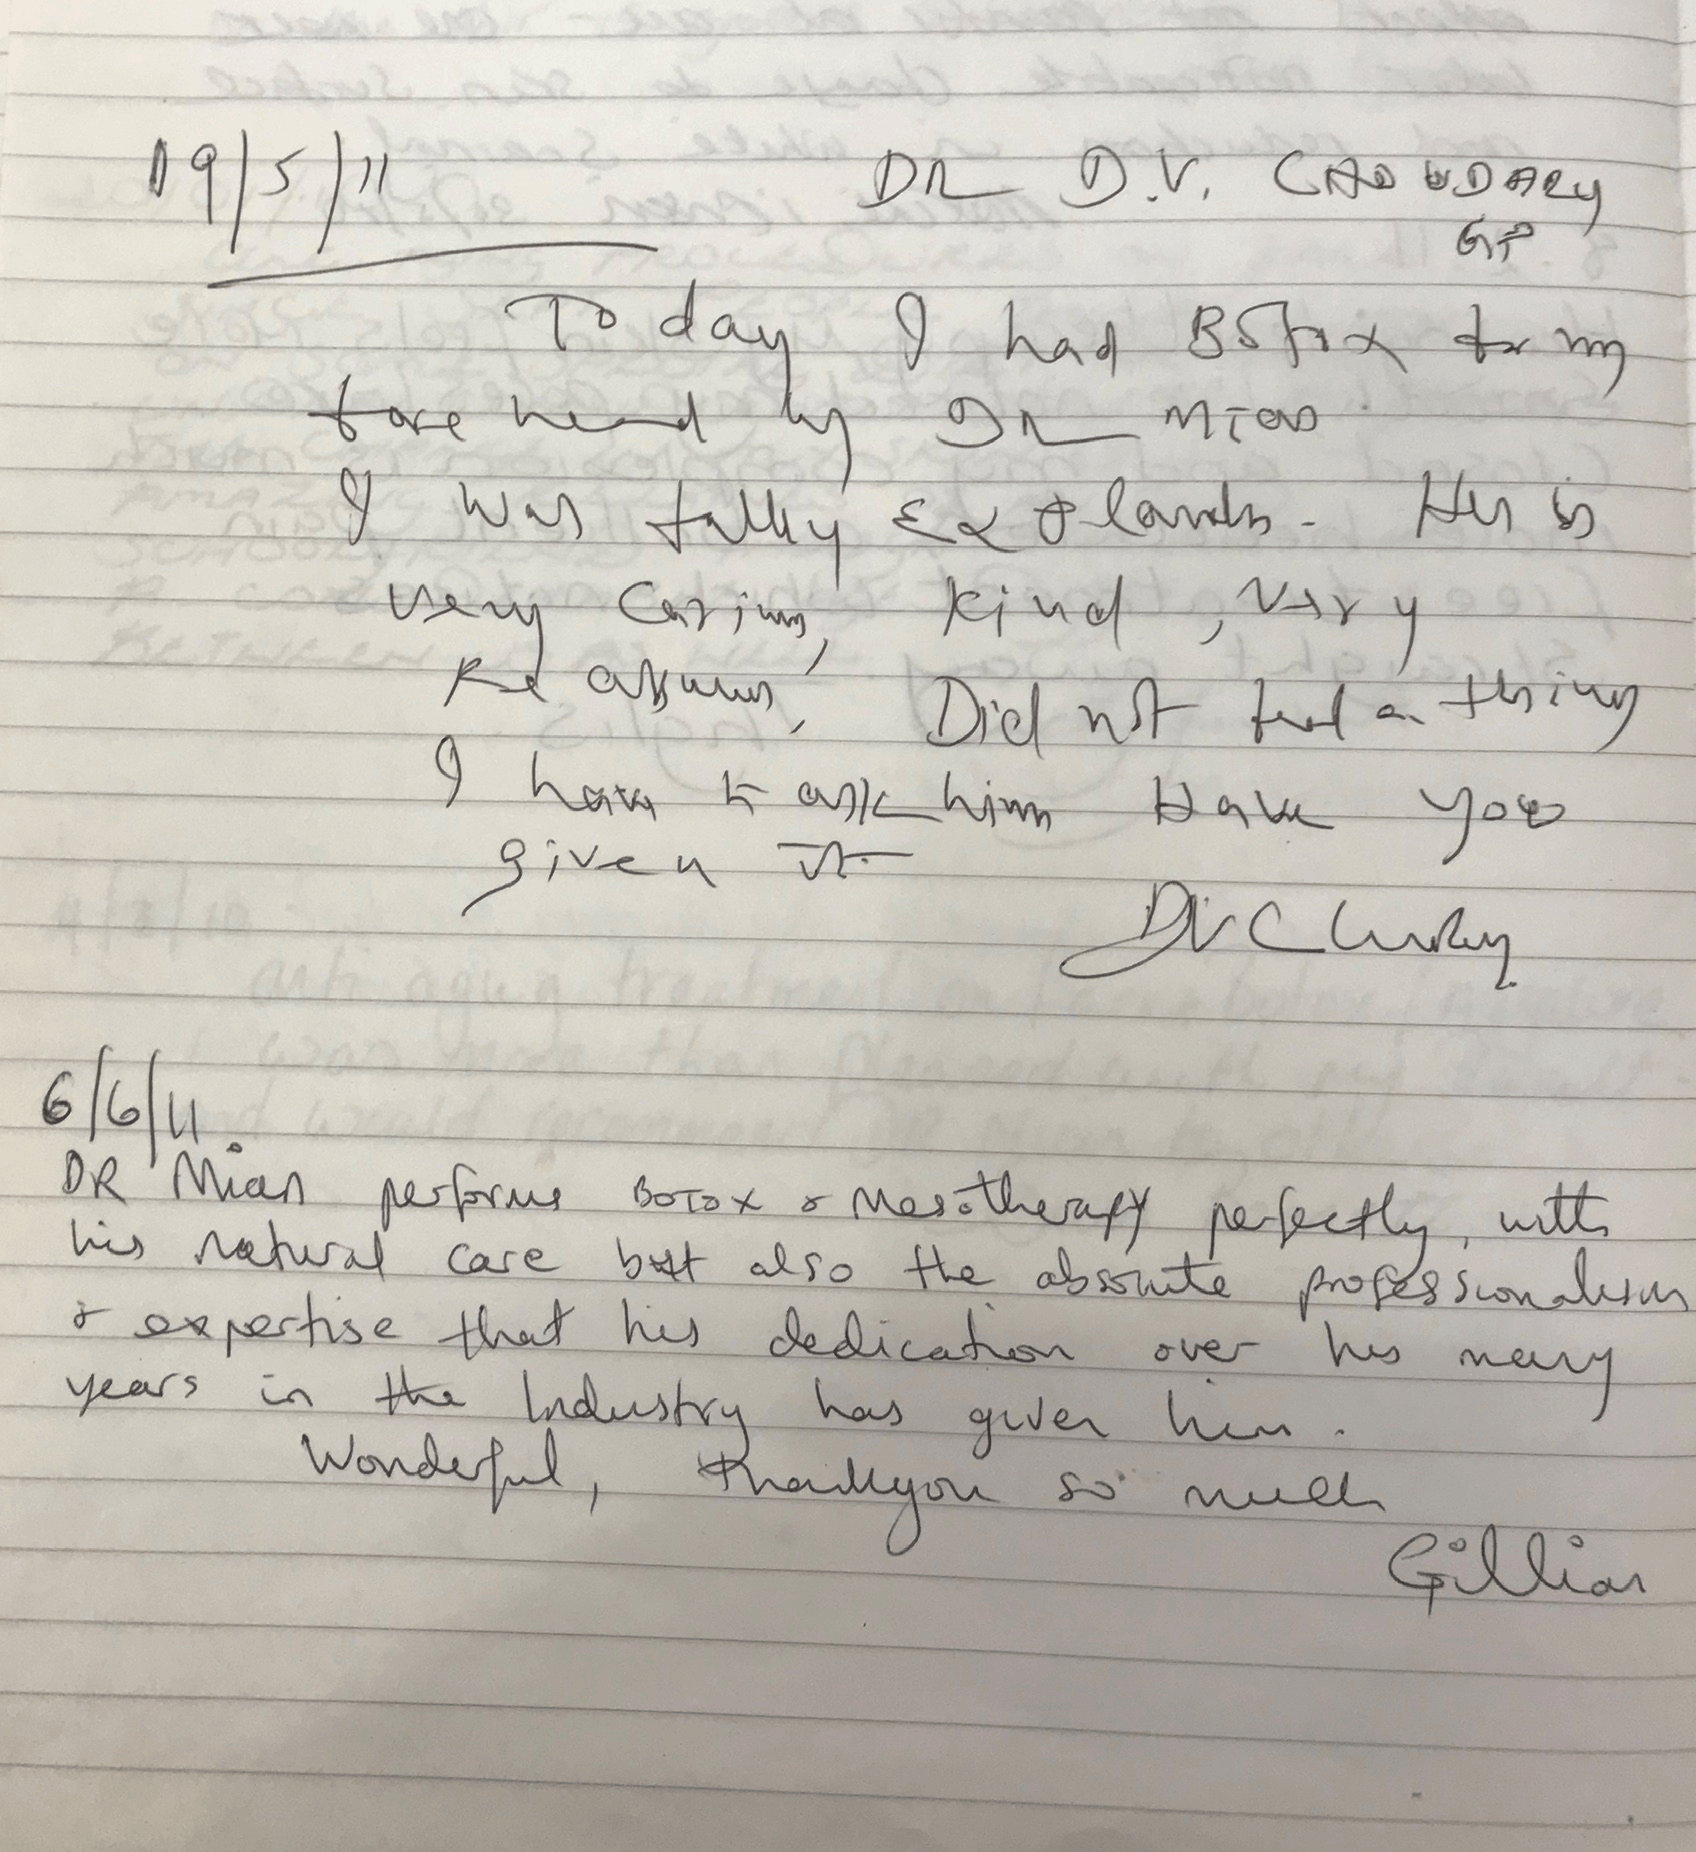 19/5/11
DR D.V. CHOWDARY
GP
Today I had Botox for my
fore head by DR MIAN
I was fully Ex plands. He is
very Caring, kind, very
Re assuring, Did not feel a thing
I have to ask him Have you
given it
DVC
6/6/11.
DR Mian performs BOTOX & Mesotherapy perfectly, with
his natural care but also the absolute professionalism
& expertise that his dedication over his many
years in the Industry has given him.
Wonderful, thankyou so much
Gillian